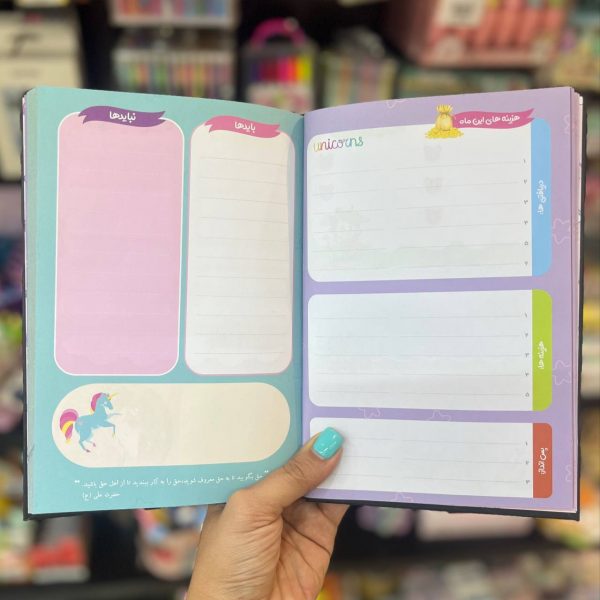 هزینه های این ماه
unicorns
دریافتی ها:
۱
۲
۳
۴
۵
۶
هزینه ها:
۱
۲
۳
۴
۵
پس انداز:
۱
۲
۳
بایدها
نبایدها
"حق بگویید تا به حق معروف شوید، حق را به کار ببندید تا از اهل حق باشید."
حضرت علی (ع)